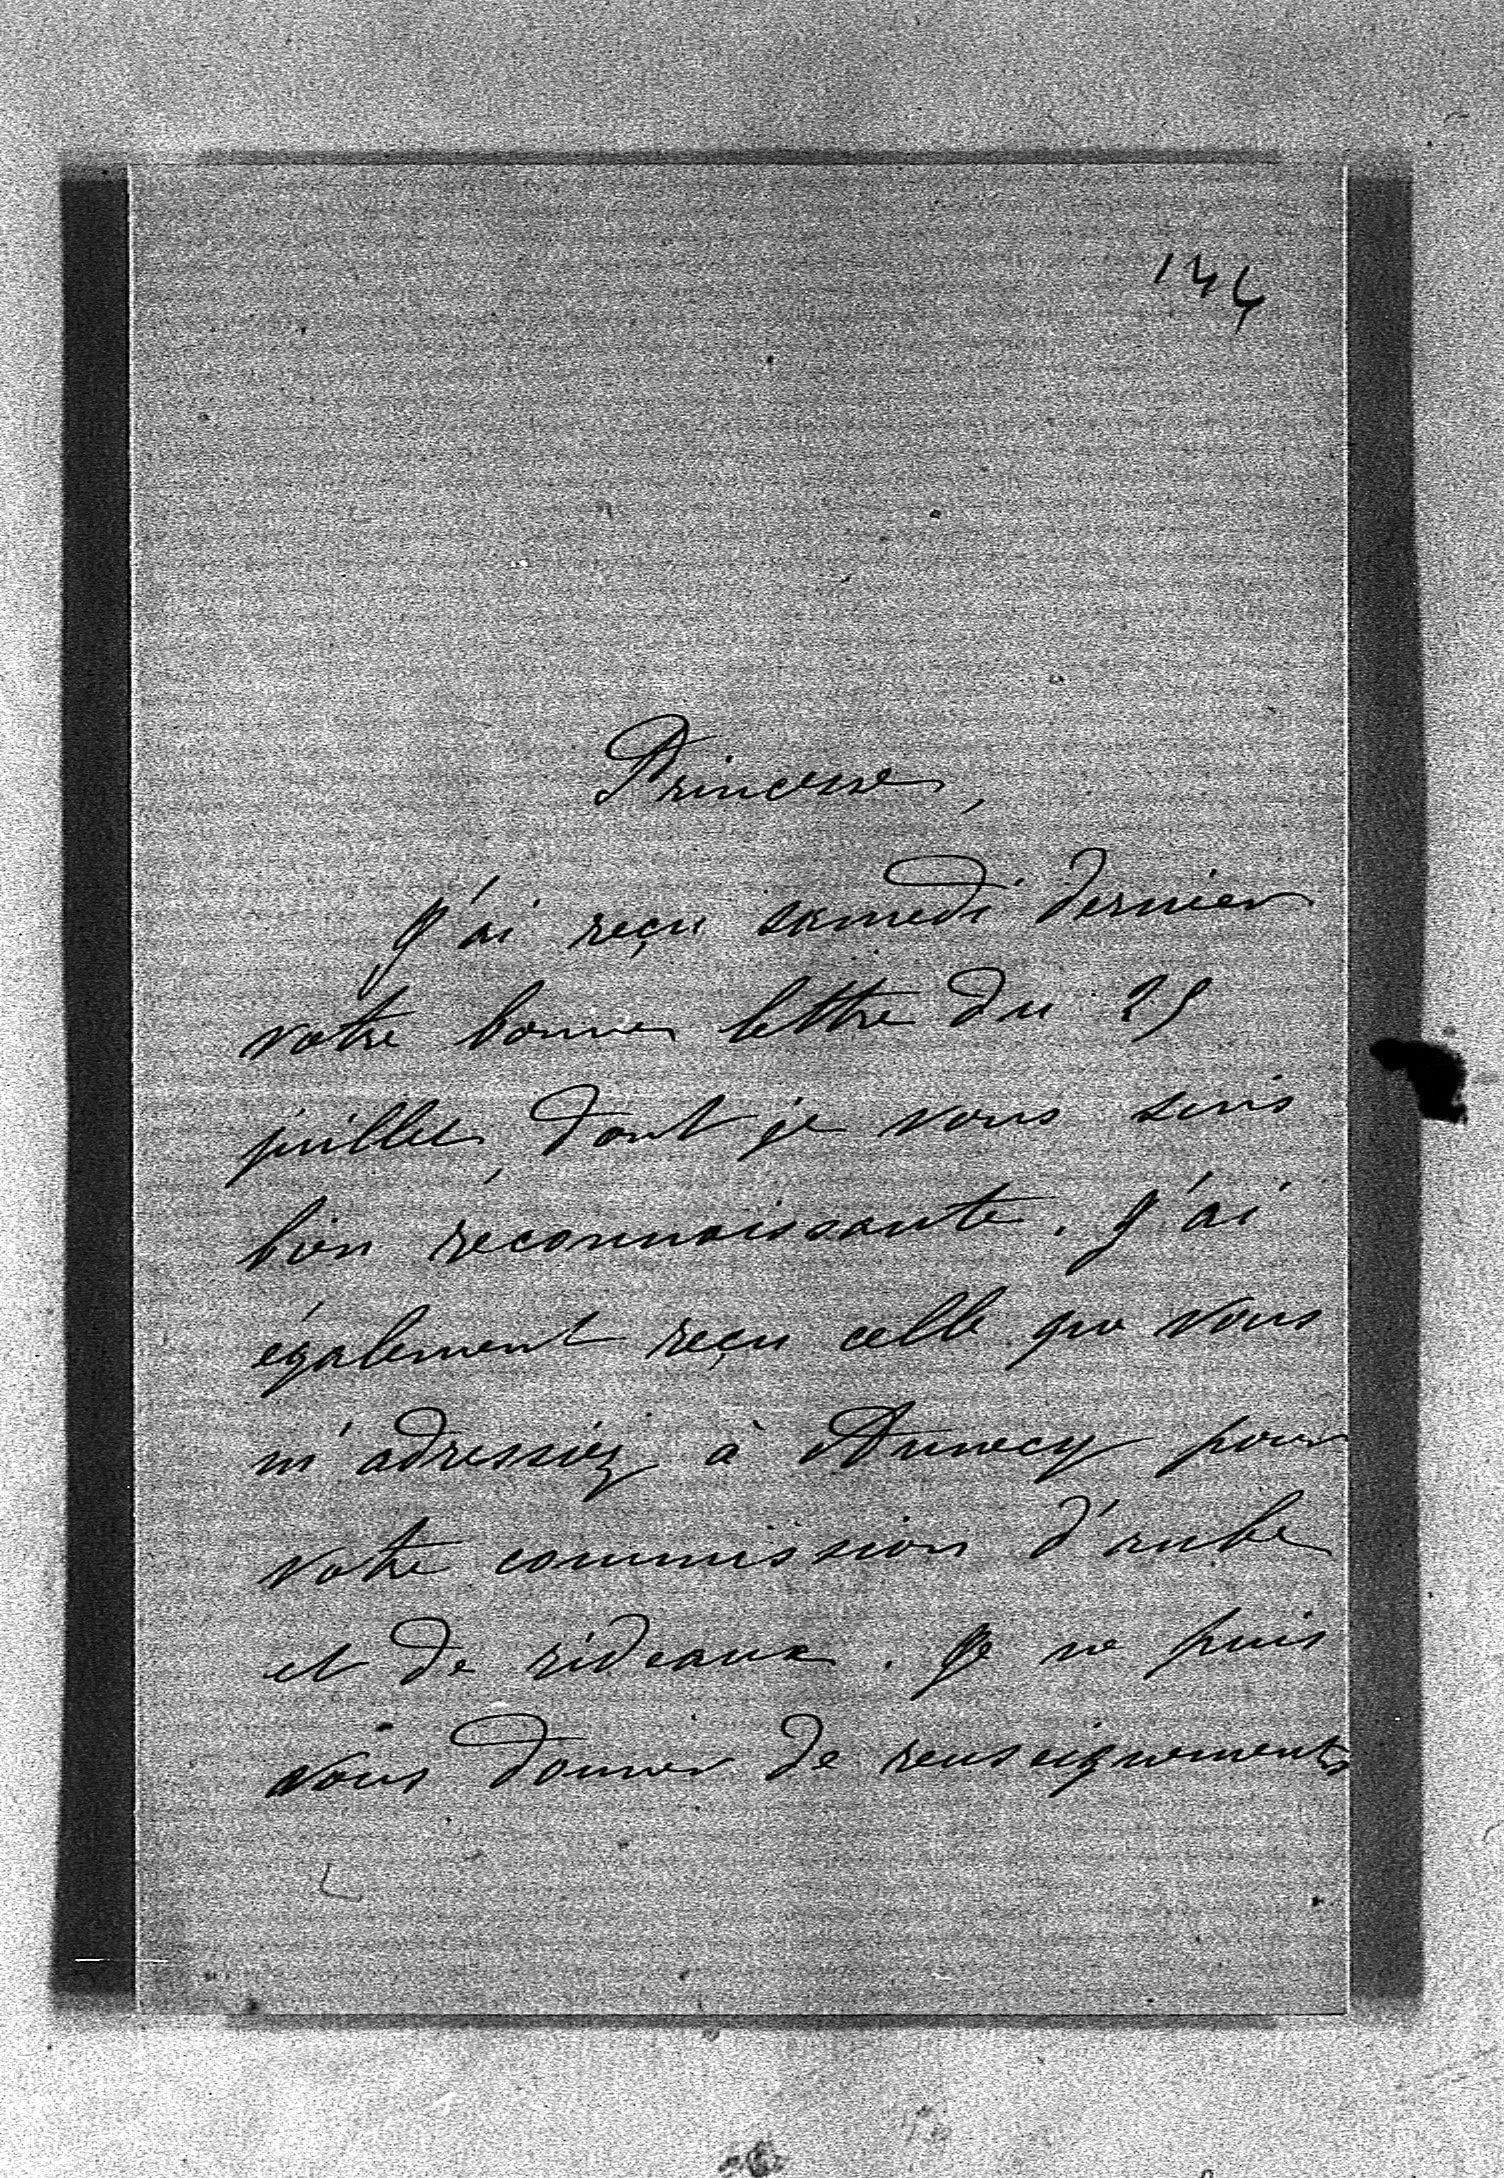 144
Princesse,
J'ai reçu samedi dernier
votre bonne lettre du 25
juillet, dont je vous suis
bien reconnaissante. J'ai
également reçu celle que vous
m'adressiez à Annecy pour
votre commission d'aube
et de rideaux. Je ne puis
vous donner de renseignements